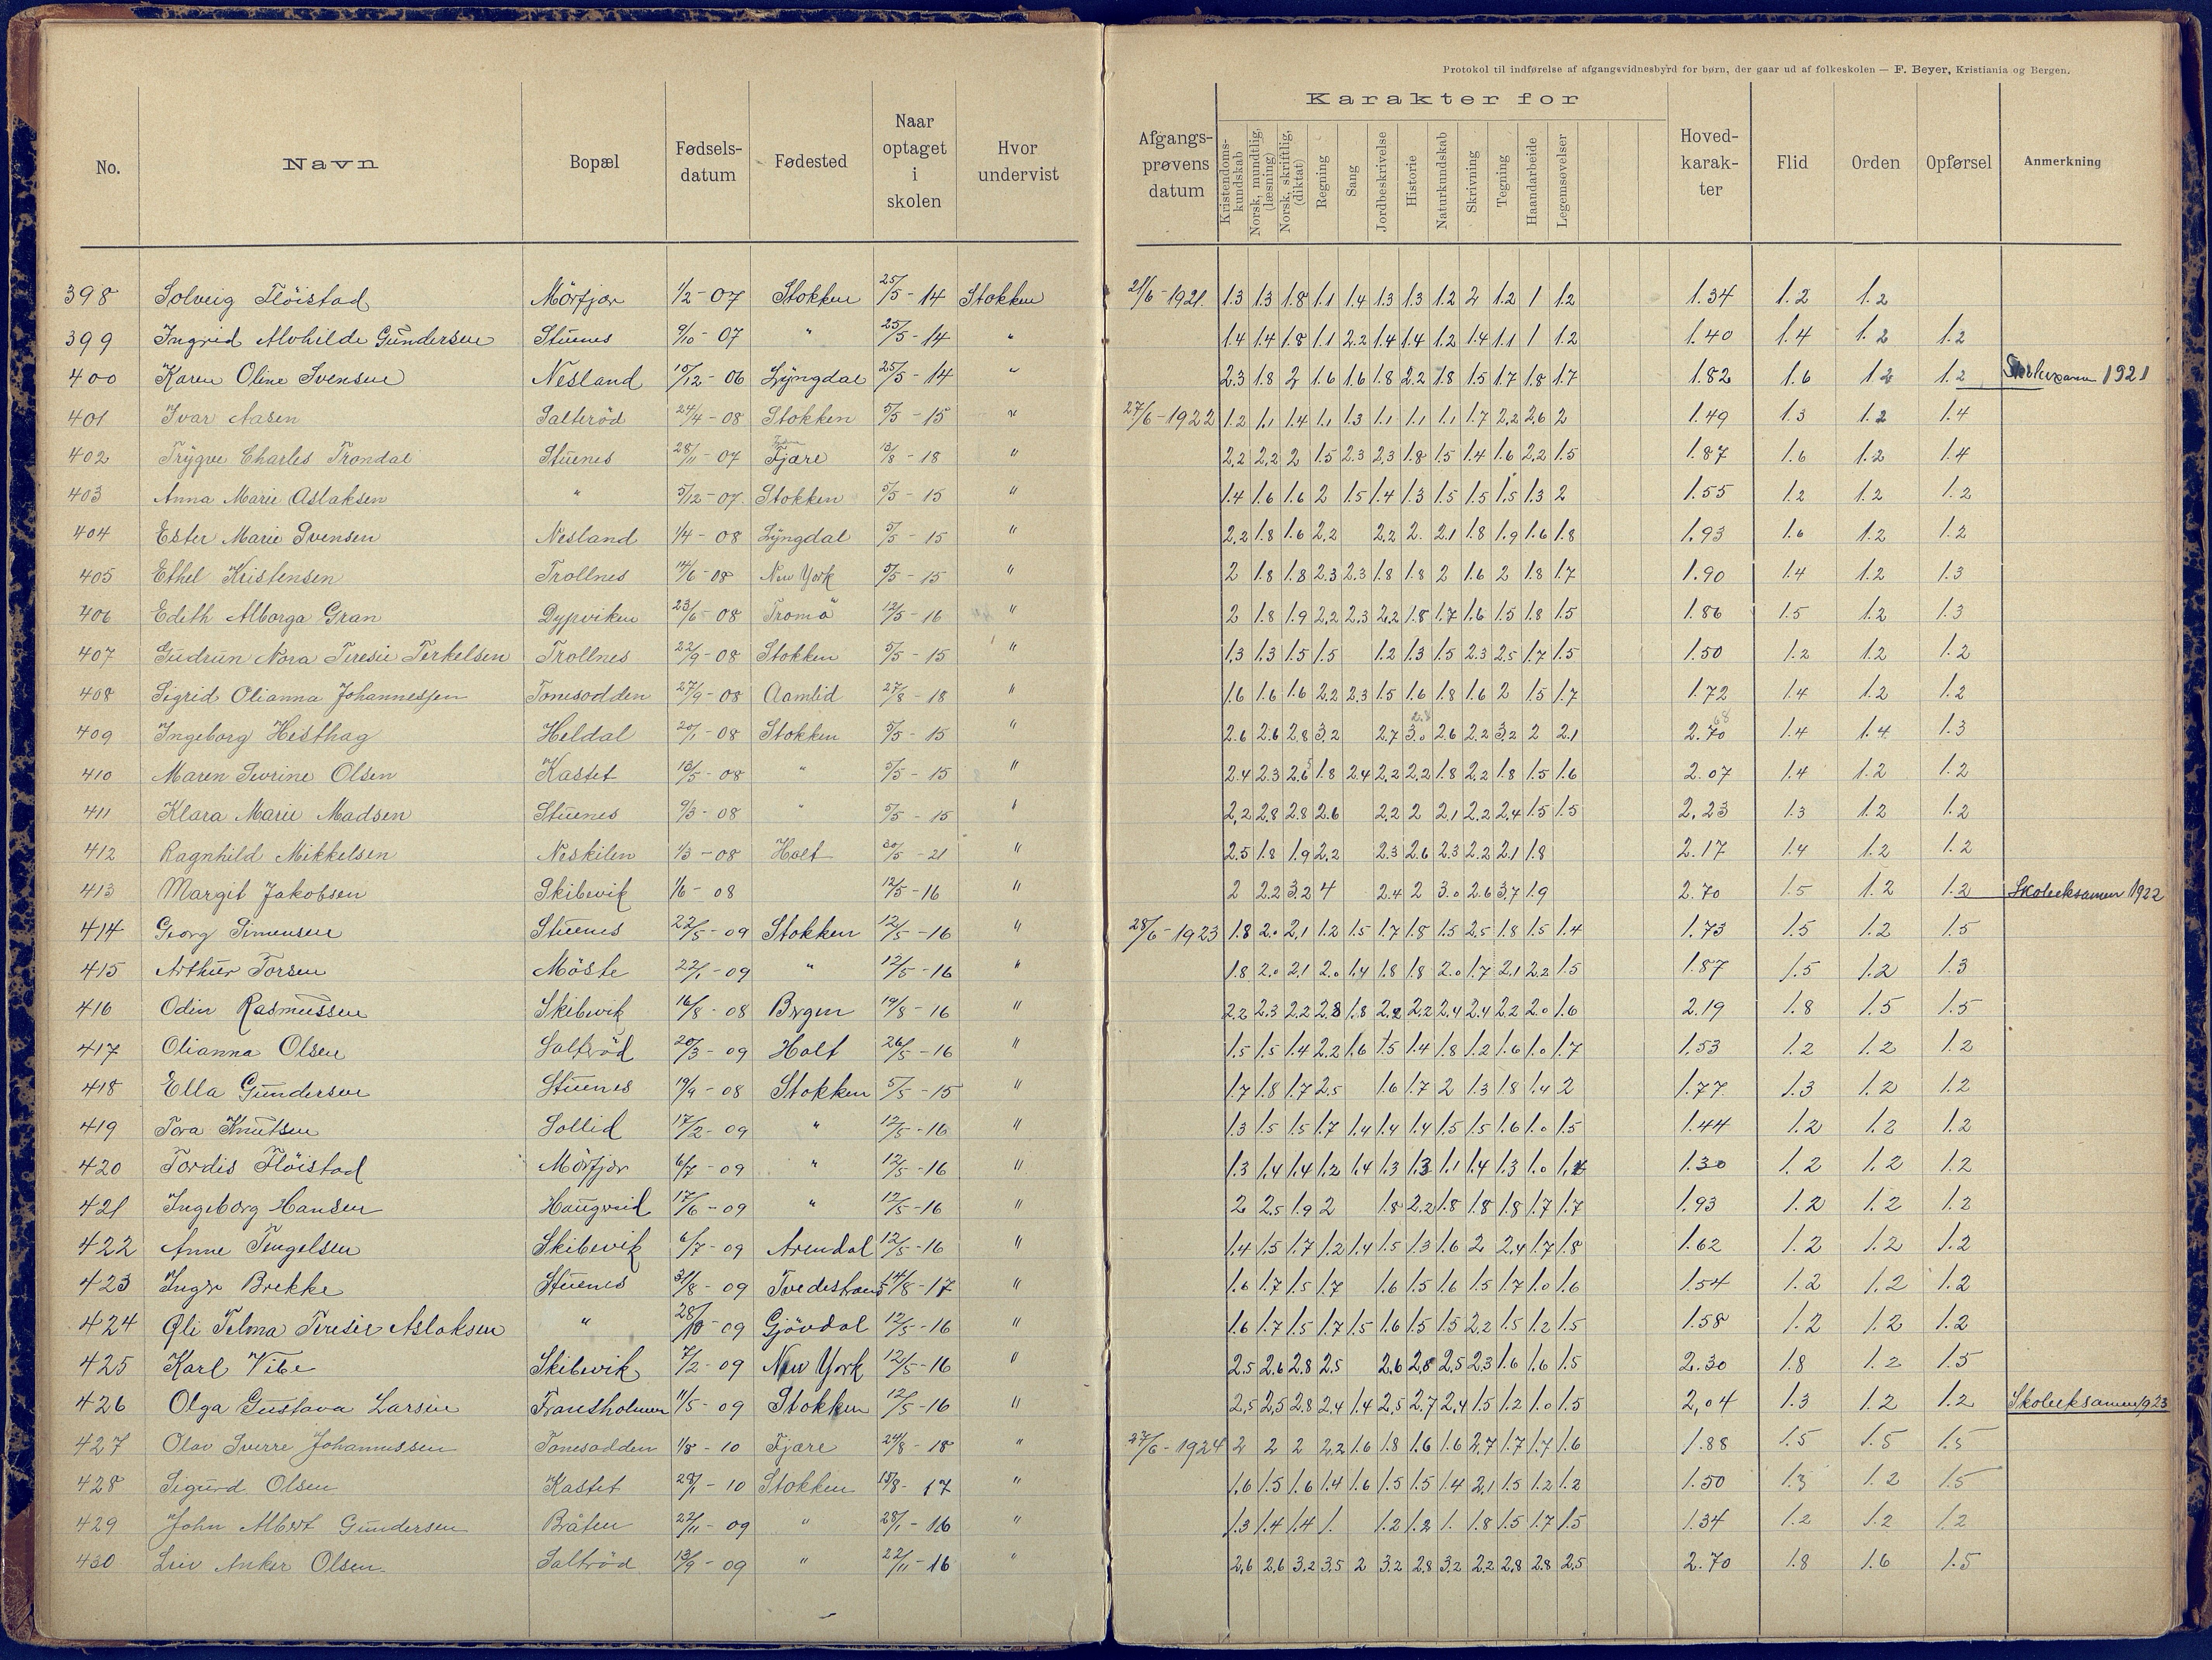 Protokol til indførelse af afgangsvidnesbyrd for børn, der gaar ud af folkeskolen — F. Beyer, Kristiania og Bergen.
No. Navn Bopæl Fødsels-datum Fødested Naar optaget i skolen Hvor undervist Afgangs-prøvens datum Karakter for Kristendoms-kundskab Norsk, mundtlig, (læsning) Norsk, skriftlig, (diktat) Regning Sang Jordbeskrivelse Historie Naturkundskab Skrivning Tegning Haandarbeide Legemsøvelser Hoved-karak-ter Flid Orden Opførsel Anmerkning
398 Solveig Flöistad Mörfjær 1/2-07 Stokken 25/5-14 Stokken 21/6-1921. 1.3 1.3 1.8 1.1 1.4 1.3 1.3 1.2 2 1.2 1 1.2 1.34 1.2 1.2
399 Ingrid Alvhilde Gundersen Stuenes 9/10-07 " 25/5-14 " 1.4 1.4 1.8 1.1 2.2 1.4 1.4 1.2 1.4 1.1 1 1.2 1.40 1.4 1.2 1.2
400 Karen Oline Svensen Nesland 10/12-06 Lyngdal 25/5-14 " 2.3 1.8 2 1.6 1.6 1.8 2.2 1.8 1.5 1.7 1.8 1.7 1.82 1.6 1.2 1.2 1921
401 Ivar Aasen Salteröd 24/4-08 Stokken 5/5-15 " 27/6-1922 1.2 1.1 1.4 1.1 1.3 1.1 1.1 1.1 1.7 2.2 2.6 2 1.49 1.3 1.2 1.4
402 Trygve Charles Trondal Stuenes 28/11-07 Fjære 13/8-18 " 2.2 2.2 2 1.5 2.3 2.3 1.8 1.5 1.4 1.6 2.2 1.5 1.87 1.6 1.2 1.4
403 Anna Marie Aslaksen " 5/12-07 Stokken 5/5-15 " 1.4 1.6 1.6 2 1.5 1.4 1.3 1.5 1.5 1.5 1.3 2 1.55 1.2 1.2 1.2
404 Ester Marie Svensen Nesland 1/4-08 Lyngdal 5/5-15 " 2.2 1.8 1.6 2.2 2.2 2. 2.1 1.8 1.9 1.6 1.8 1.93 1.6 1.2 1.2
405 Ethel Kristensen Trollnes 14/6-08 New York 5/5-15 " 2 1.8 1.8 2.3 2.3 1.8 1.8 2 1.6 2 1.8 1.7 1.90 1.4 1.2 1.3
406 Edith Alborga Gran Dypviken 23/6-08 Tromö 12/5-16 " 2 1.8 1.9 2.2 2.3 2.2 1.8 1.7 1.6 1.5 1.8 1.5 1.86 1.5 1.2 1.3
407 Gudrun Nora Teresie Terkelsen Trollnes 22/9-08 Stokken 5/5-15 " 1.3 1.3 1.5 1.5 1.2 1.3 1.5 2.3 2.5 1.7 1.5 1.50 1.2 1.2 1.2
408 Sigrid Olianna Johannessen Tonesodden 27/9-08 Aamlid 27/8-18 " 1.6 1.6 1.6 2.2 2.3 1.5 1.6 1.8 1.6 2 1.5 1.7 1.72 1.4 1.2 1.2
409 Ingeborg Hesthag Heldal 20/1-08 Stokken 5/5-15 " 2.6 2.6 2.8 3.2 2.7 3.0 2.6 2.2 3.2 2 2.1 2.70 68 1.4 1.4 1.3
410 Maren Severine Olsen Kastet 13/5-08 " 5/5-15 " 2.4 2.3 2.6 1.8 2.4 2.2 2.2 1.8 2.2 1.8 1.5 1.6 2.07 1.4 1.2 1.2
411 Klara Marie Madsen Stuenes 9/3-08 " 5/5-15 " 2.2 2.8 2.8 2.6 2.2 2 2.1 2.2 2.4 1.5 1.5 2.23 1.3 1.2 1.2
412 Ragnhild Mikkelsen Neskilen 1/3-08 Holt 20/5-21 " 2.5 1.8 1.9 2.2 2.3 2.6 2.3 2.2 2.1 1.8 2.17 1.4 1.2 1.2
413 Margit Jakobsen Skibevik 1/6-08 12/5-16 " 2 2.2 3.2 4 2.4 2 3.0 2.6 3.7 1.9 2.70 1.5 1.2 1.2 Skoleeksamen 1922
414 Georg Simensen Stuenes 22/5-09 Stokken 12/5-16 " 28/6-1923 1.8 2.0 2.1 1.2 1.5 1.7 1.8 1.5 2.5 1.8 1.5 1.4 1.73 1.5 1.2 1.5
415 Arthur Torsen Möste 22/1-09 " 12/5-16 " 1.8 2.0 2.1 2.0 1.4 1.8 1.8 2.0 1.7 2.1 2.2 1.5 1.87 1.5 1.2 1.3
416 Odin Rasmussen Skibevik 16/8-08 Bergen 19/8-16 " 2.2 2.3 2.2 2.8 1.8 2.2 2.2 2.4 2.4 2.2 2.0 1.6 2.19 1.8 1.5 1.5
417 Olianna Olsen Saltröd 20/3-09 Holt 26/5-16 " 1.5 1.5 1.4 2.2 1.6 1.5 1.4 1.8 1.2 1.6 1.0 1.7 1.53 1.2 1.2 1.2
418 Ella Gundersen Stuenes 19/9-08 Stokken 5/5-15 " 1.7 1.8 1.7 2.5 1.6 1.7 2 1.3 1.8 1.4 2 1.77 1.3 1.2 1.2
419 Tora Knutsen Sollid 17/2-09 " 12/5-16 " 1.3 1.5 1.5 1.7 1.4 1.4 1.4 1.5 1.5 1.6 1.0 1.5 1.44 1.2 1.2 1.2
420 Tordis Flöistad Mörfjær 6/7-09 " 12/5-16 " 1.3 1.4 1.4 1.2 1.4 1.3 1.3 1.1 1.4 1.3 1.0 1.30 1.2 1.2 1.2
421 Ingeborg Hansen Haugreid 17/6-09 " 12/5-16 " 2 2.5 1.9 2 1.8 2.2 1.8 1.8 1.8 1.7 1.7 1.93 1.2 1.2 1.2
422 Anne Tengelsen Skibevik 6/7-09 Arendal 12/5-16 " 1.4 1.5 1.7 1.2 1.4 1.5 1.3 1.6 2 2.4 1.7 1.8 1.62 1.2 1.2 1.2
423 Inger Brekke Stuenes 31/8-09 Tvedestrand 14/8-17 " 1.6 1.7 1.5 1.7 1.6 1.5 1.6 1.5 1.7 1.0 1.6 1.54 1.2 1.2 1.2
424 Oli Telma Teresie Aslaksen " 28/10-09 Gjövdal 12/5-16 " 1.6 1.7 1.5 1.7 1.5 1.6 1.5 1.5 2.2 1.5 1.2 1.5 1.58 1.2 1.2 1.2
425 Karl Vibe Skibevik 7/2-09 New York 12/5-16 " 2.5 2.6 2.8 2.5 2.6 2.8 2.5 2.3 1.6 1.6 1.5 2.30 1.8 1.2 1.5
426 Olga Gustava Larsen Fransholmen 11/5-09 Stokken 12/5-16 " 2.5 2.5 2.8 2.4 1.4 2.5 2.7 2.4 1.5 1.2 1.0 1.5 2,04 1.3 1.2 1.2 Skoleeksamen 1923
427 Olav Sverre Johannessen Tonesodden 1/8-10 Fjære 24/8-18 " 27/6-1924 2 2 2 2.2 1.6 1.8 1.6 1.6 2.7 1.7 1.7 1.6 1.88 1.5 1.5 1.5
428 Sigurd Olsen Kastet 28/1-10 Stokken 15/8-17 " 1.6 1.5 1.6 1.4 1.6 1.5 1.5 1.4 2.1 1.5 1.2 1.2 1.50 1.3 1.2 1.5
429 John Albert Gundersen Bråten 22/11-09 " 28/1-16 " 1.3 1.4 1.4 1. 1.2 1.2 1. 1.8 1.5 1.7 1.5 1.34 1.2 1.2 1.2
430 Leiv Anker Olsen Saltröd 13/9-09 " 22/11-16 " 2.6 2.6 3.2 3.5 2 3.2 2.8 3.2 2.2 2.8 2.8 2.5 2.70 1.8 1.6 1.5